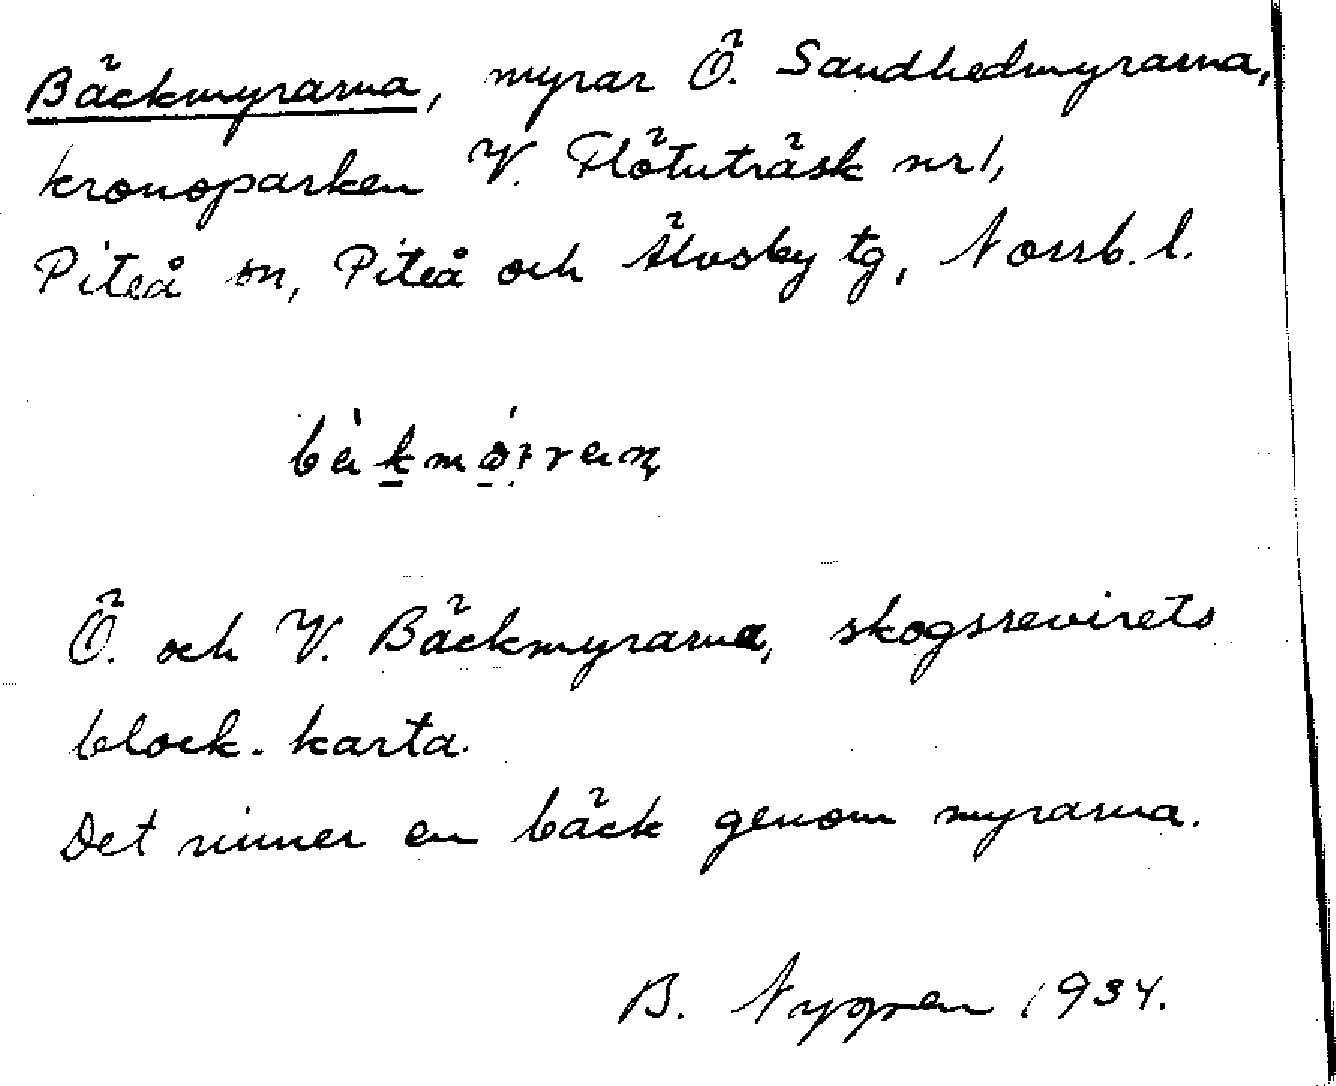 Bäckmyrarna, myrar Ö. Sandhedmyrarna,
kronoparken V. Flötuträsk nr 1,
Piteå sn, Piteå och Älvsby tg, Norrb. l.
Ö. och V. Bäckmyrarna, skogsrevirets
block. karta.
Det rinner en bäck genom myrarna.
B. Nygren 1934.